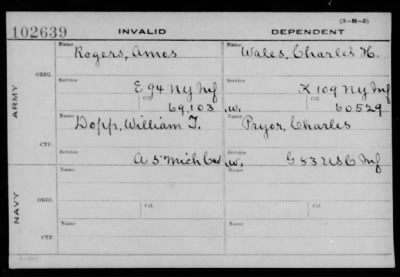 (3-W-3)
102639 INVALID DEPENDENT
Name Name
Rogers, Amos Wales, Charles H.
ORIG. Service Service
E 94 NY Inf K 109 NY Inf
Ctf. Ctf.
69,103 W. 60529
ARMY
Name Name
Dopp, William T. Pryor, Charles
CTF. Service Service
A 5" Mich Cav W. G 83 USC Inf
Name Name
ORIG. Service Ctf. Service Ctf.
NAVY
Name Name
CTF. Service Service